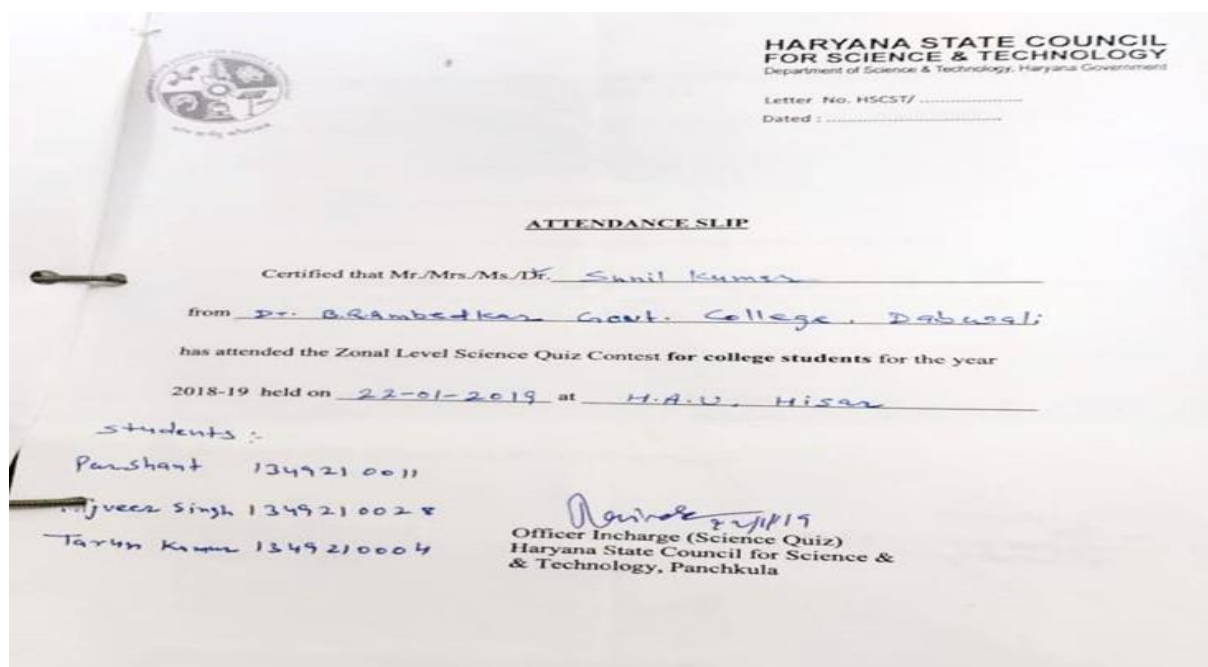 HARYANA STATE COUNCIL
FOR SCIENCE & TECHNOLOGY
Department of Science & Technology, Haryana Government
Letter No. HSCST/ .....................
Dated : ................................
ATTENDANCE SLIP
Certified that Mr./Mrs./Ms./Dr. Sunil Kumar
from Dr. B.R Ambedkar Govt. College, Dabwali
has attended the Zonal Level Science Quiz Contest for college students for the year
2018-19 held on 22-01-2019 at H.A.U, Hisar
students :-
Parshant 1349210011
Singh 1349210028
Tarun Kumar 1349210004
22/1/19
Officer Incharge (Science Quiz)
Haryana State Council for Science &
& Technology, Panchkula